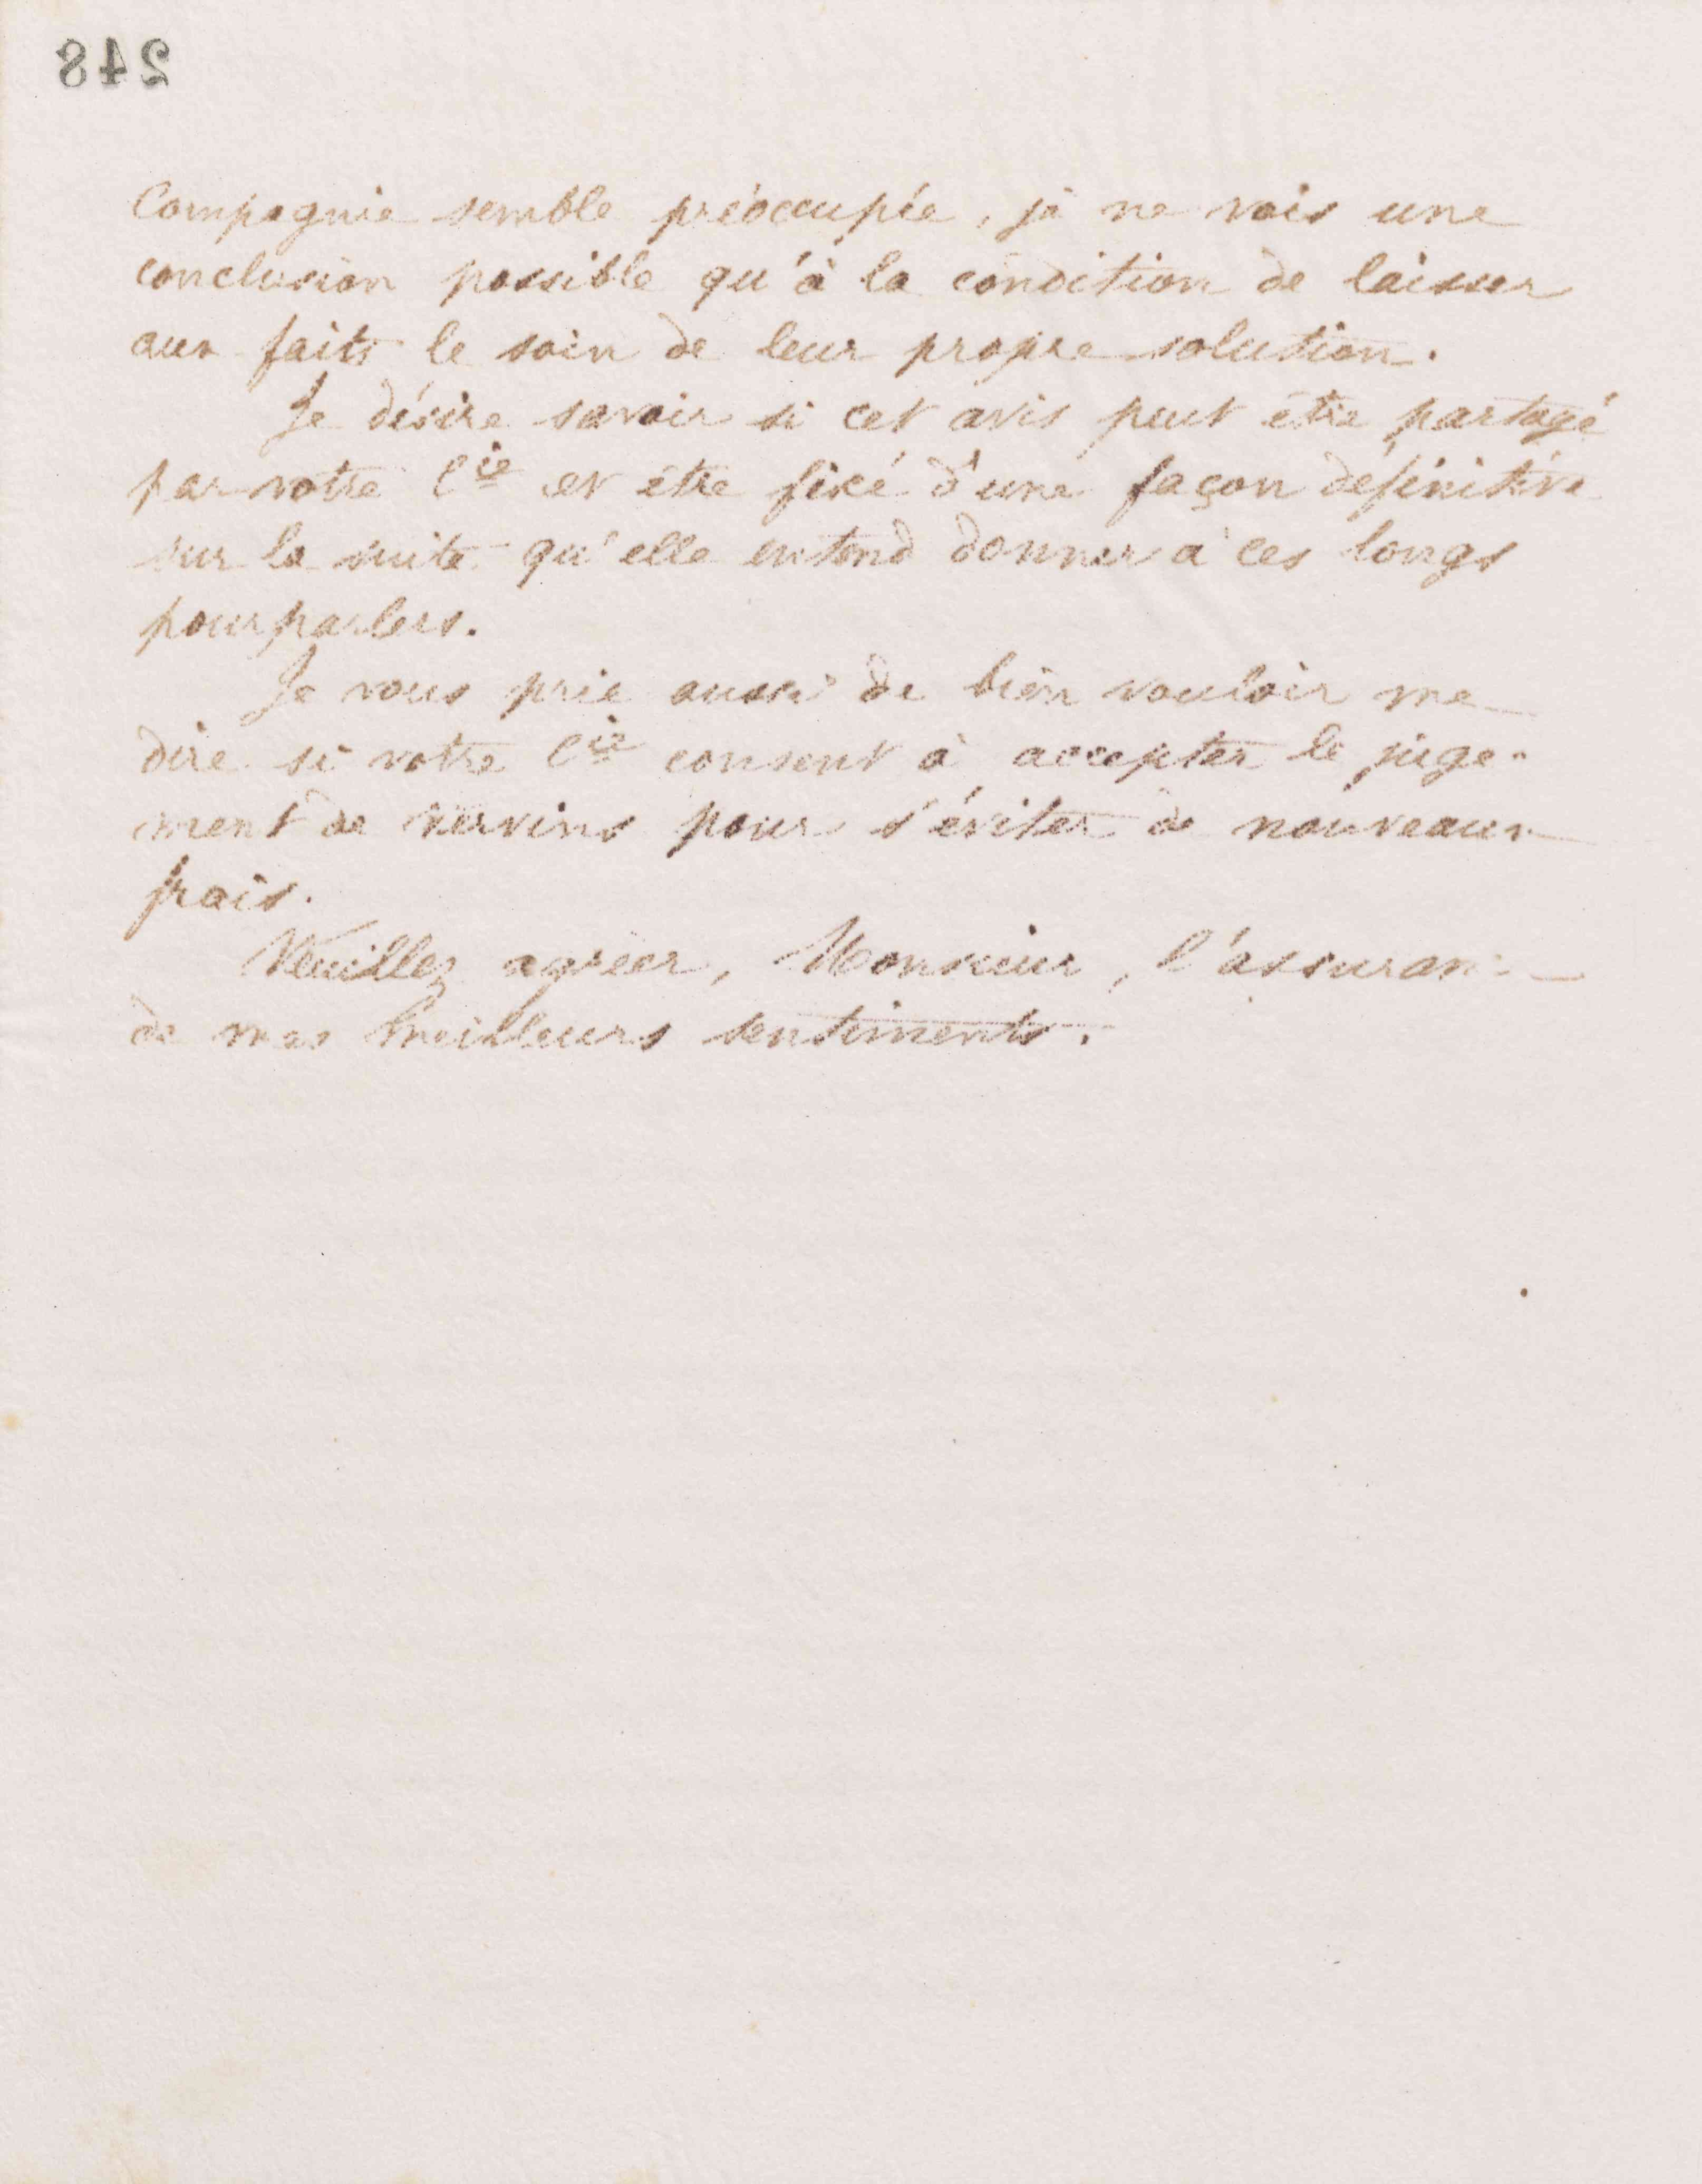 248
Compagnie semble préoccupée, je ne vois une
conclusion possible qu'à la condition de laisser
aux faits le soin de leur propre solution.
Je désire savoir si cet avis peut être partagé
par votre Cie et être fixé d'une façon définitive
sur la suite qu'elle entend donner à ces longs
pourparlers.
Je vous prie aussi de bien vouloir me
dire si votre Cie consent à accepter le juge-
ment de Vervins pour s'éviter de nouveaux
frais.
Veuillez agréer, Monsieur, l'assurance
de mes meilleurs sentiments.